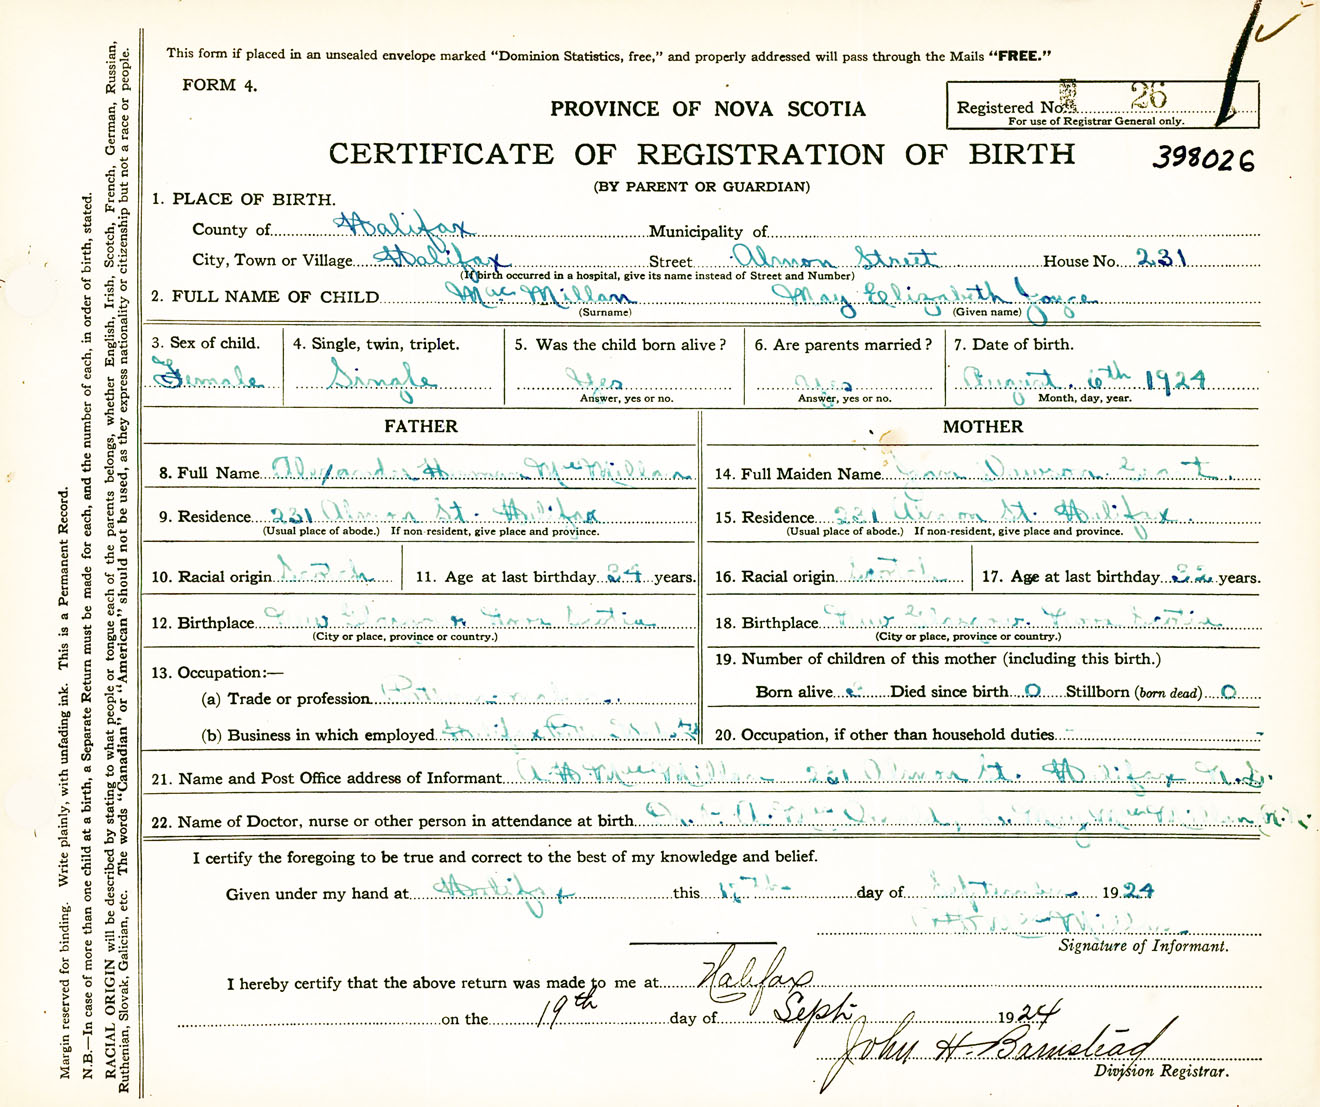 This form if placed in an unsealed envelope marked “Dominion Statistics, free,” and properly addressed will pass through the Mails “FREE.”
FORM 4.
Registered No. 26
For use of Registrar General only.
PROVINCE OF NOVA SCOTIA
CERTIFICATE OF REGISTRATION OF BIRTH
398026
(BY PARENT OR GUARDIAN)
1. PLACE OF BIRTH.
County of Halifax Municipality of
City, Town or Village Halifax Street Almon Street House No. 231
(If birth occurred in a hospital, give its name instead of Street and Number)
2. FULL NAME OF CHILD MacMillan May Elizabeth Joyce
(Surname) (Given name)
3. Sex of child. 4. Single, twin, triplet. 5. Was the child born alive? 6. Are parents married? 7. Date of birth.
Female Single Yes Yes August 6th 1924
Answer, yes or no. Answer, yes or no. Month, day, year.
FATHER MOTHER
8. Full Name Alexander MacMillan 14. Full Maiden Name Grant
9. Residence 231 Almon St. Halifax 15. Residence 231 Almon St. Halifax.
(Usual place of abode.) If non-resident, give place and province. (Usual place of abode.) If non-resident, give place and province.
10. Racial origin Scotch 11. Age at last birthday 24 years. 16. Racial origin Scotch 17. Age at last birthday 22 years.
12. Birthplace New Glasgow Nova Scotia 18. Birthplace New Glasgow Nova Scotia
(City or place, province or country.) (City or place, province or country.)
13. Occupation:— 19. Number of children of this mother (including this birth.)
(a) Trade or profession Born alive Died since birth 0 Stillborn (born dead) 0
(b) Business in which employed 20. Occupation, if other than household duties
21. Name and Post Office address of Informant A. H. MacMillan 231 Almon St. Halifax N.S.
22. Name of Doctor, nurse or other person in attendance at birth
I certify the foregoing to be true and correct to the best of my knowledge and belief.
Given under my hand at Halifax this 17th day of September 1924
Signature of Informant.
I hereby certify that the above return was made to me at Halifax
on the 19th day of Sept 1924
John H. Barnstead
Division Registrar.
Margin reserved for binding. Write plainly, with unfading ink. This is a Permanent Record.
N.B.—In case of more than one child at a birth, a Separate Return must be made for each, and the number of each, in order of birth, stated.
RACIAL ORIGIN will be described by stating to what people or tongue each of the parents belongs, whether English, Irish, Scotch, French, German, Russian,
Ruthenian, Slovak, Galician, etc. The words “Canadian” or “American” should not be used, as they express nationality or citizenship but not a race or people.